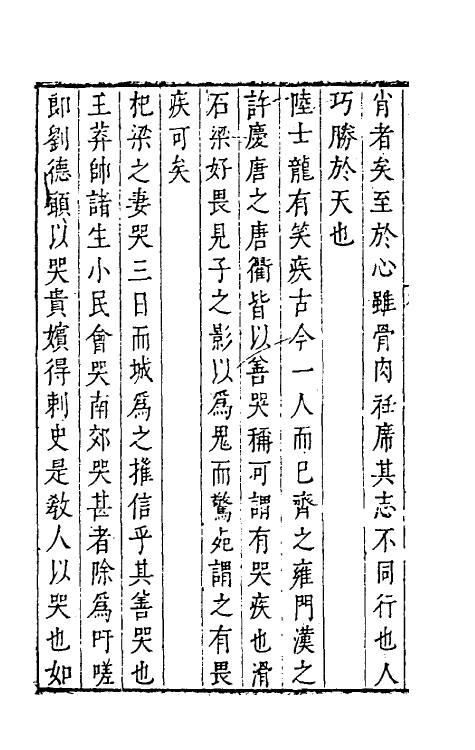 肖者矣至於心雖骨肉衽席其志不同行也人
巧勝於天也
陸士龍有笑疾古今一人而已齊之雍門漢之
許慶唐之唐衢皆以善哭稱可謂有哭疾也涓
石梁好畏見子之影以爲鬼而驚死謂之有畏
疾可矣
杞梁之妻哭三日而城爲之摧信乎其善哭也
王莽帥諸生小民會哭南郊哭甚者除爲吁嗟
郎劉德願以哭貴嬪得刺史是敎人以哭也如